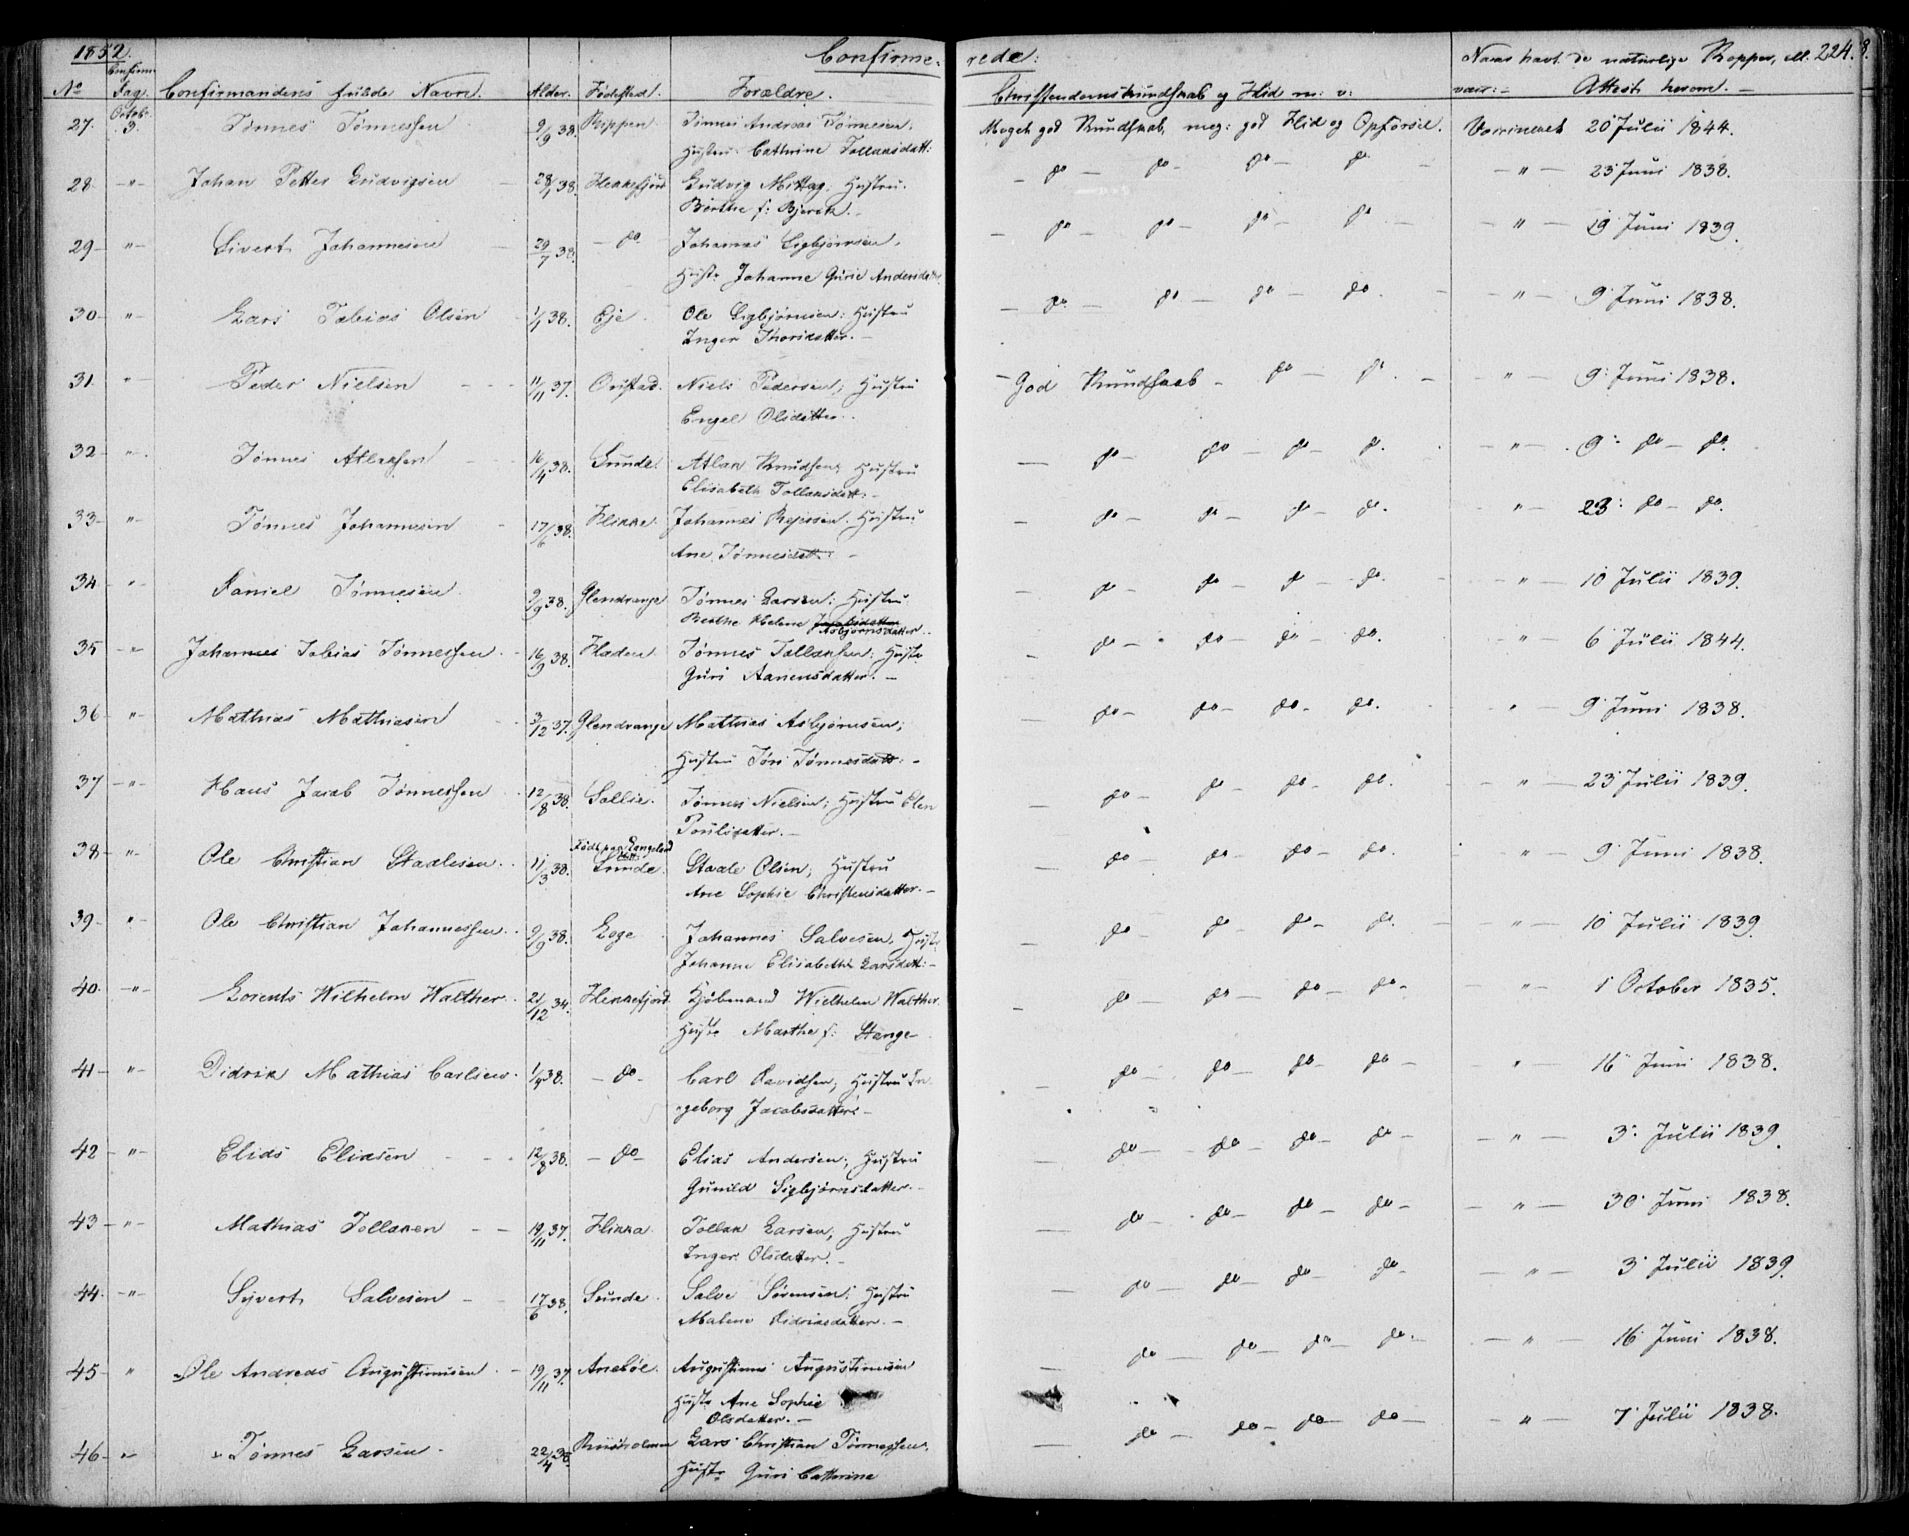 1852.
Confirme- rede:
224.
No Confirm. Dag. Confirmandens fulde Navn. Alder. Fødested. Forældre. Christendomskundskab og Flid m: v: Naar havt de naturlige Kopper, ell. vacc:- Attest herom.-
27. Octobr. 3. Tønnes Tønnessen 9/9 38. Kippen Tønnes Andreas Tønnesen, Meget god Kundskab, meg: god Flid og Opførsel. Vaccineret 20 Julii 1844.
Hustru Cathrine Tollaksdatt:
28. -"- Johan Petter Ludvigsen 28/1 38. Hekkefjord Ludvig Mittag, Hustru - do - do - do - do - " - 23 Juni 1838.
Børthe f: Bjerck.-
29 -"- Sivert Johannesen 29/7 38. - do Johannes Sigbjørnsen, - do - do - do - do - " - 19 Juni 1839.
Hustr Johanne Gurie Andersdatt
30 - " - Lars Tobias Olsen 1/1 38. Eje Ole Sigbjørnsen: Hustru - do - do - do - do - " - 9 Juni 1838.
Inger Thorsdatter.-
31. " Peder Nielsen 11/11 37. Orestad. Niels Pedersen; Hustru - God Kundskab - do - do - " - 9 Juni 1838.
Engel Olsdatter.
32 - " - Tønnes Atlaksen 16/4 38. Sunde. Atlak Knudsen; Hustru - do - do - do - do - " - 9 - do - do
Elisabeth Tollaksdatt:-
33 - " - Tønnes Johannesen 17/6 38. Flikke. Johannes Rejersen. Hustru - do - do - do - do. - " - 23: do - do.
Ane Tønnesdatt. -
34 " Daniel Tønnesen 9/9 38. Glendrange Tønnes Larsen: Hustru - do - do - do - do. - " - 10 Julii 1839.
Berthe Helene Jacobsdatter Asbjørnsdatter.
35 - " - Johannes Tobias Tønnessen 16/9 38. Fladen Tønnes Tollaksen: Hustr - do - do - do - do. - " - 6 Julii 1844.
Guri Aanensdatter. -
36 - " - Mathias Mathiasen 3/12 37. Glendrange Mathias Asbjørnsen; - do - do - do - do. " - 9 Juni 1838.
Hustru Tøri Tønnesdatt: -
37 - " - Hans Jacob Tønnessen 12/8 38. Sollie. Tønnes Nielsen; Hustru Elen - do - do - do - do. - " - 23 Julii 1839.
Poulsdatter.-
38 - " - Ole Christian Staalesen. 11/3 38. Født paa Langeland Sunde. Staale Olsen; Hustru - do - do - do - do. - " - 9 Juni 1838.
Ane Sophie Christensdatter.-
39 - " - Ole Christian Johannessen 9/9 38. Loge Johannes Salvesen, Hustr - do - do - do - do. - " - 10 Julii 1839
Johanne Elisabeth Larsdatt:-
40. - " - Lorents Wilhelm Walther. 21/12 34. Hekkefjord Kjøbmand Wilhelm Walther - do - do - do - do - - " - 1 October 1835.
Hustr Marthe f: Stange
41 - " - Didrik Mathias Carlsen. 1/9 38. - do - Carl Davidsen; Hustru In - do - do - do - do - " - 16 Juni 1838.
-geborg Jacobsdatter -
42 - " - Elias Eliasen - - 12/8 38. - do - Elias Andersen; Hustru - do - do - do - do - - " - 3 Julii 1839
Gunild Sigbjørnsdatter.-
43 - " - Mathias Tollaksen - - 19/11 37. Flikka. Tollak Larsen, Hustru - do - do - do - do - - " - 30 Juni 1838.
Inger Olsdatter.-
44. - " - Syvert Salvesen - 17/6 38. Sunde. Salve Sørensen: Hustru - do - do - do - do - - " - 3 Julii 1839.
Malene Didriksdatter. -
45 - " Ole Andreas Augustinusen 19/11 37. Anebøe. Augustinus Augustinusen - do - do - do - do. - " - 16 Juni 1838.
Hustr Ane Sophie
Olsdatter.-
46 - " - Tønnes Larsen. 22/4 38. Lars Christian Tønnessen, - do - do - do - do - - " - 7 Julii 1838.
Hustr Guri Cathrine